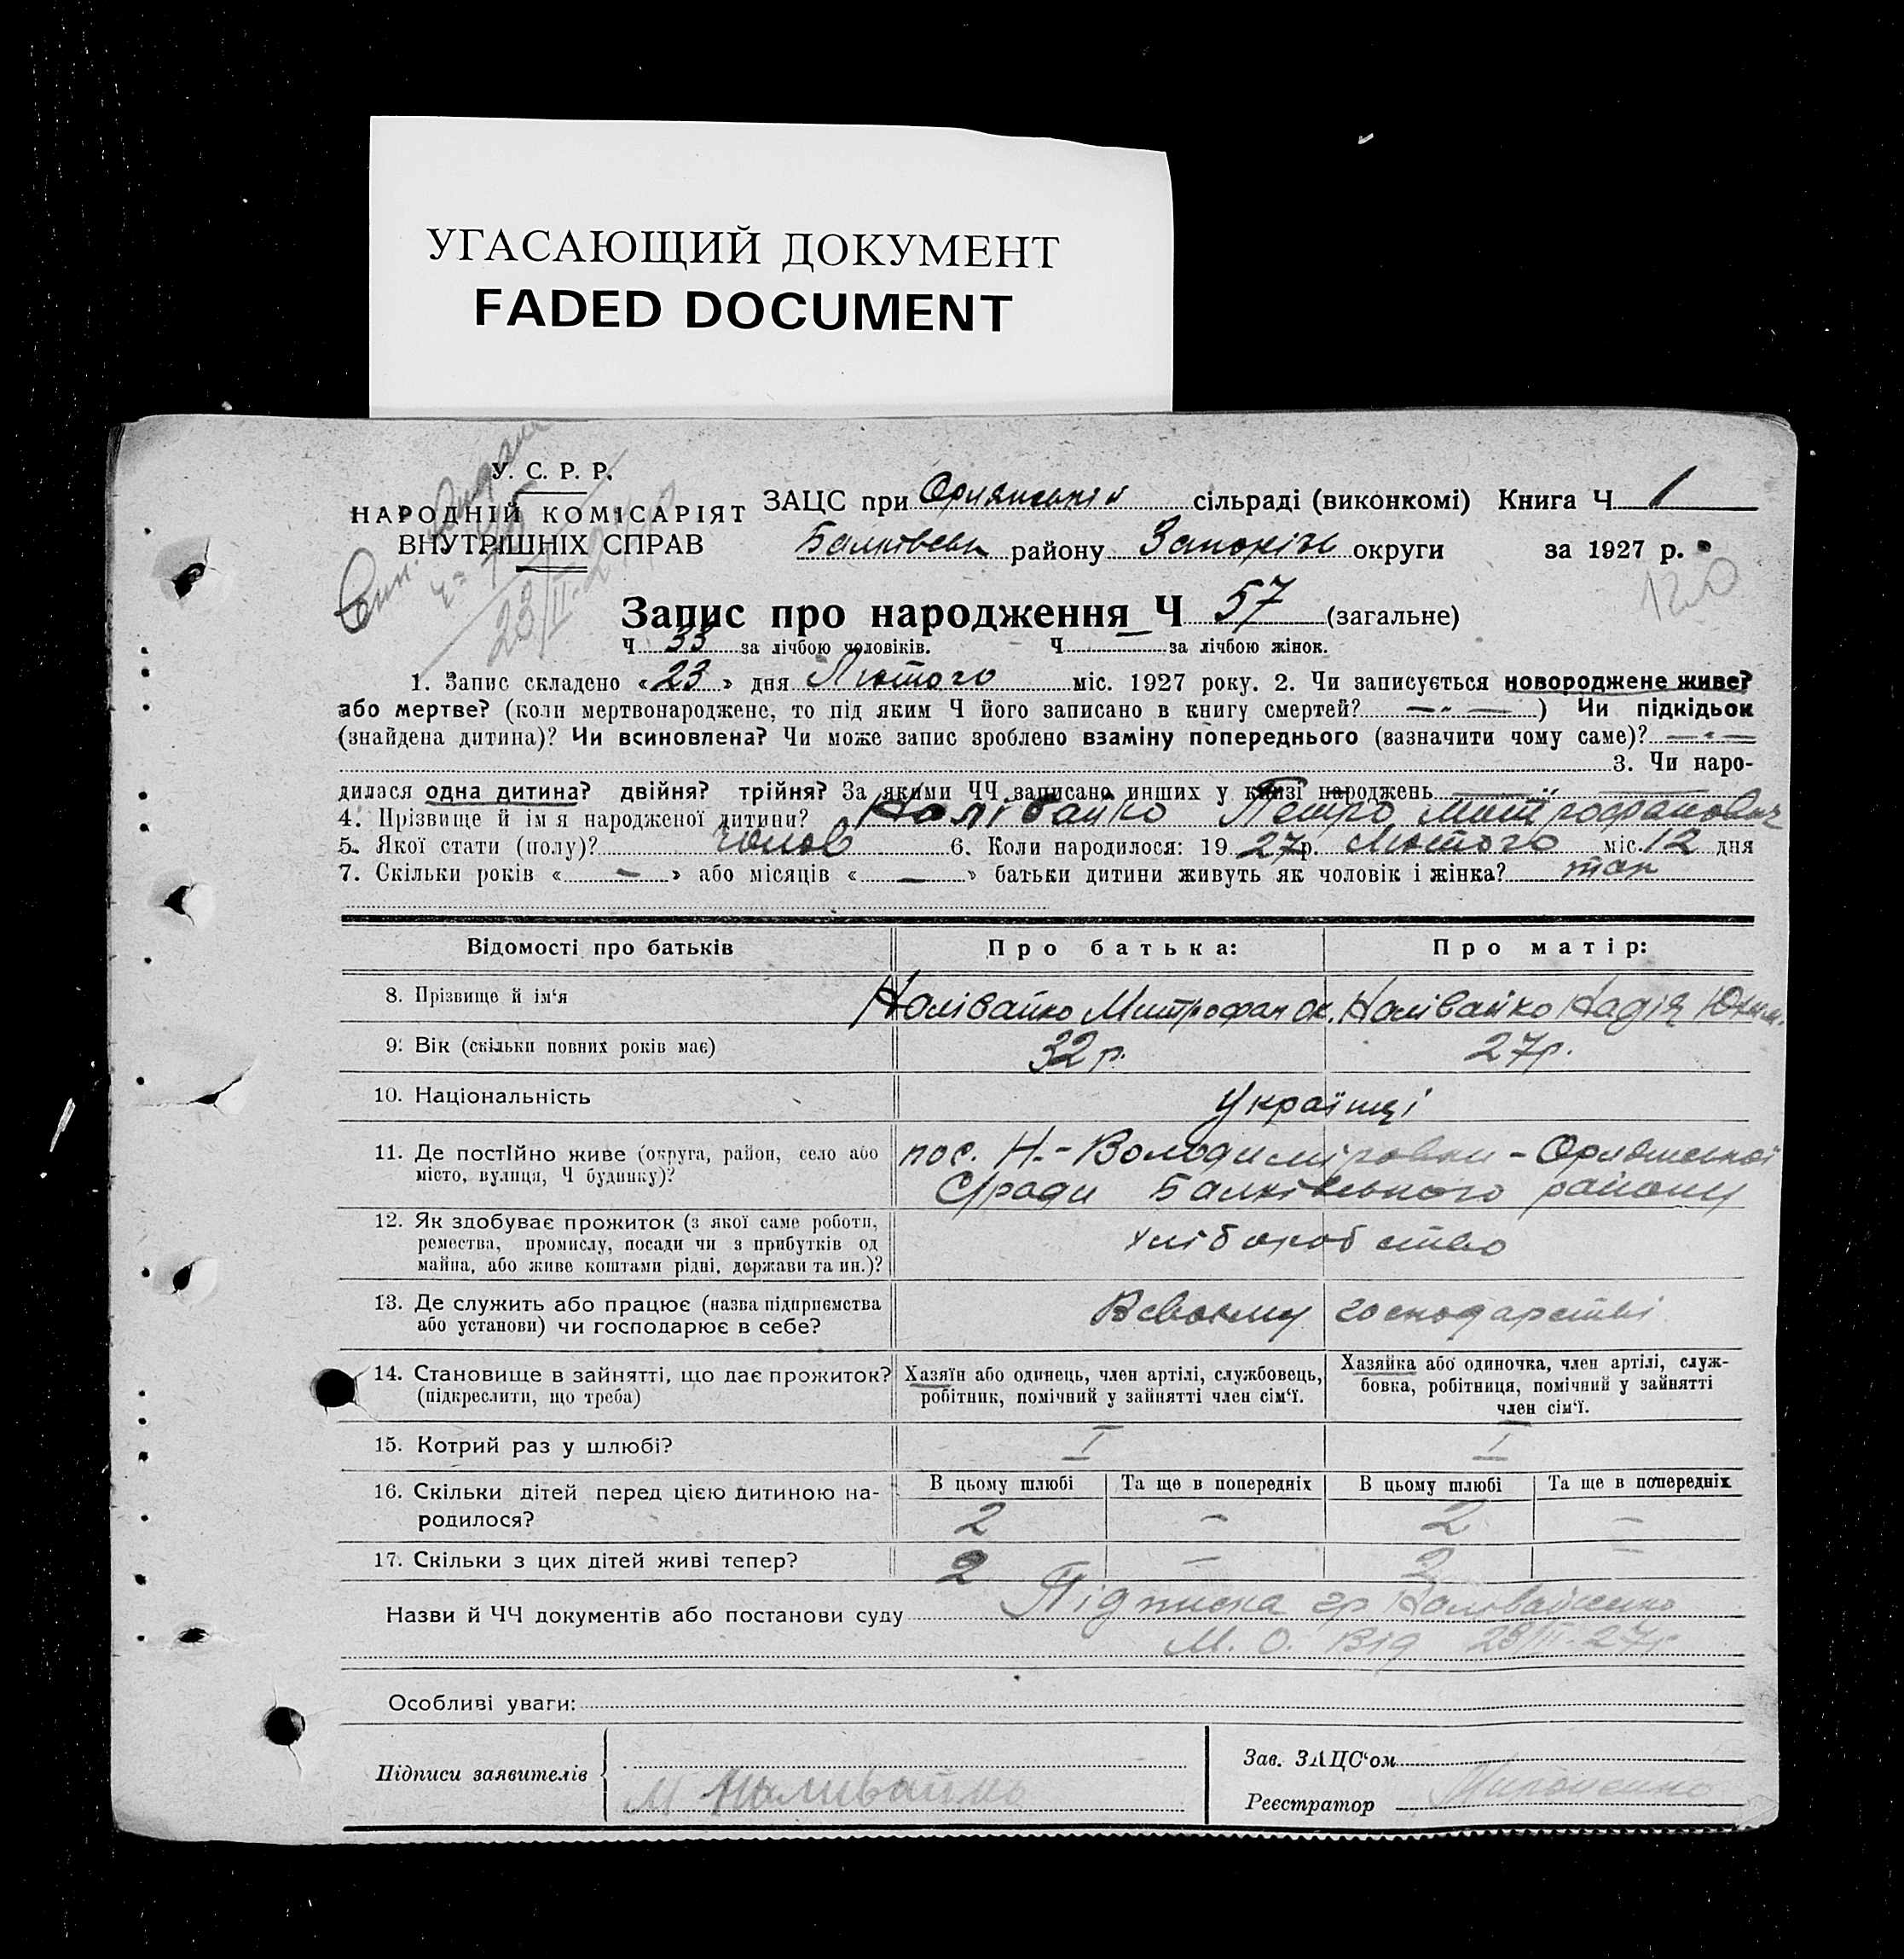 УГАСАЮЩИЙ ДОКУМЕНТ
FADED DOCUMENT
У. С. Р. Р.
НАРОДНІЙ КОМІСАРІЯТ
ВНУТРІШНІХ СПРАВ
ЗАЦС при Орлянській сільраді (виконкомі) Книга Ч 1
Балківськ району Запоріж округи за 1927 р.
23/II-27
120
Запис про народження Ч 57 (загальне)
Ч 33 за лічбою чоловіків. Ч за лічбою жінок.
1. Запис складено «23» дня Лютого міс. 1927 року. 2. Чи записується новороджене живе?
або мертве? (коли мертвонароджене, то під яким Ч його записано в книгу смертей? — „ —) Чи підкідьок
(знайдена дитина)? Чи всиновлена? Чи може запис зроблено взаміну попереднього (зазначити чому саме)? — „ —
3. Чи наро-
дилася одна дитина? двійня? трійня? За якими ЧЧ записано инших у книзі народжень — „ —
4. Прізвище й імя народженої дитини? Налівайко Петро Митрофанович
5. Якої стати (полу)? Чолов 6. Коли народилося: 1927 р. Лютого міс. 12 дня
7. Скільки років « — » або місяців « — » батьки дитини живуть як чоловік і жінка? так
Відомості про батьків Про батька: Про матір:
8. Прізвище й ім'я Налівайко Митрофан Ок. Налівайко Надія Юхим.
9. Вік (скільки повних років має) 32 р. 27 р.
10. Національність Українці
11. Де постійно живе (округа, район, село або
місто, вулиця, Ч будинку)?
пос. Н.-Володиміровки - Орлянської
С/ради Балківського району
12. Як здобуває прожиток (з якої саме роботи,
ремества, промислу, посади чи з прибутків од
майна, або живе коштами рідні, держави та ин.)?
хліборобство
13. Де служить або працює (назва підприємства
або установи) чи господарює в себе?
В своєму господарстві
14. Становище в зайнятті, що дає прожиток?
(підкреслити, що треба)
Хазяїн або одинець, член артілі, службовець,
робітник, помічний у зайнятті член сім'ї.
Хазяйка або одиночка, член артілі, служ-
бовка, робітниця, помічний у зайнятті
член сім'ї.
15. Котрий раз у шлюбі? I I
16. Скільки дітей перед цією дитиною на-
родилося?
В цьому шлюбі Та ще в попередніх В цьому шлюбі Та ще в попередніх
2 — 2 —
17. Скільки з цих дітей живі тепер? 2 — 2 —
Назви й ЧЧ документів або постанови суду Підписка гр Налівайченко
М. О. від 23/II-27р
Особливі уваги:
Підписи заявителів
М Наливайко
Зав. ЗАЦС'ом
Реєстратор Мироненко